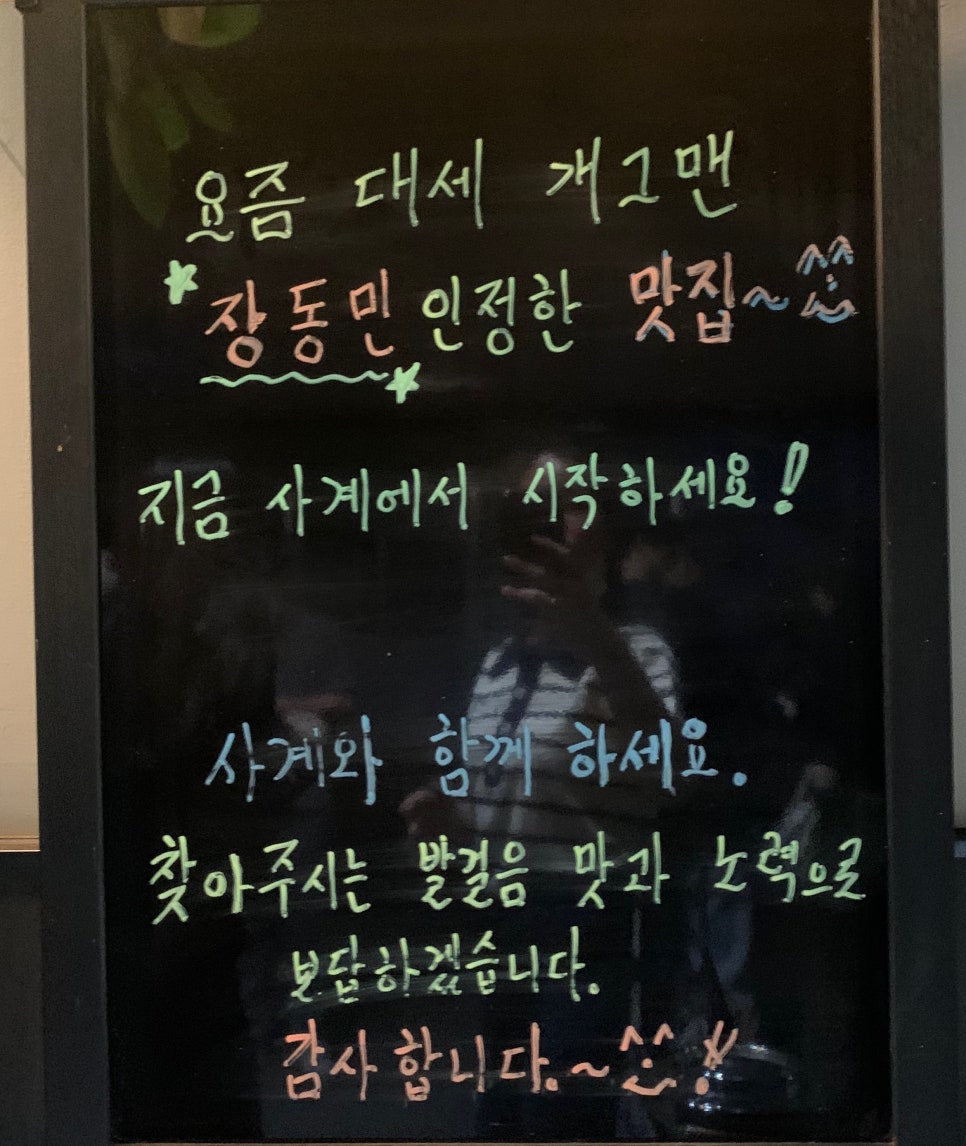 요즘 대세 개그맨
장동민 인정한 맛집~^^
지금 사계에서 시작하세요!
사계와 함께 하세요.
찾아주시는 발걸음 맛과 노력으로
보답하겠습니다.
감사합니다.~^^!